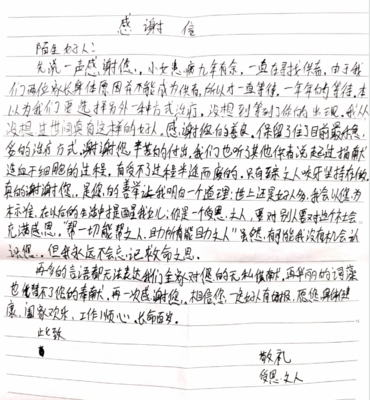 感谢信
陌生好人!
先说一声感谢您,小女患病九年有余,一直在寻找供者,由于我
们两位家长身体原因并不能成为供者,所以才一直等待,一年年的等待,本
以为我们要选择另外一种方式治疗,没想到等到了你的出现,我从
没想过世间真有这样的好人,感谢你的善良,保留了住了目前最
多的治疗方式,谢谢您辛苦的付出,我们也听了其他供者说起过捐献
造血干细胞的过程,有受不了这种罪进而悔的,只有臻文人咬牙坚持
真的谢谢您,是您的善举让我明白一个道理:世上还是好人多,我会以您为
在以后的生活中提醒我女儿:你是一个受恩之人,要对别人要对这个社会
充满感恩,"帮一切能帮之人,助力所有能助之人"虽然,有可能我没有机会认
识您,但我永远不会忘记救命之恩。
再多的言语都无法表达我们全家对您的无私捐献,再华丽的词藻
也代替不了您的奉献,再一次感谢您,相信您一定好人有好报,愿您身体健
康,阖家欢乐,工作顺心,长命百岁。
此致
敬礼
受恩之人